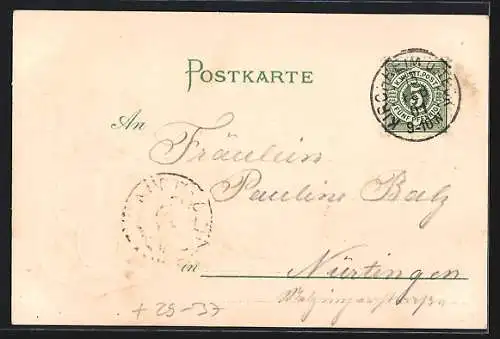 POSTKARTE
K. WÜRTT. POST
5
FÜNF PFENNIG
KIRCHHEIM U. TECK
9-10 N
An Fräulein
Pauline Balz
in Nürtingen
+ 29-37